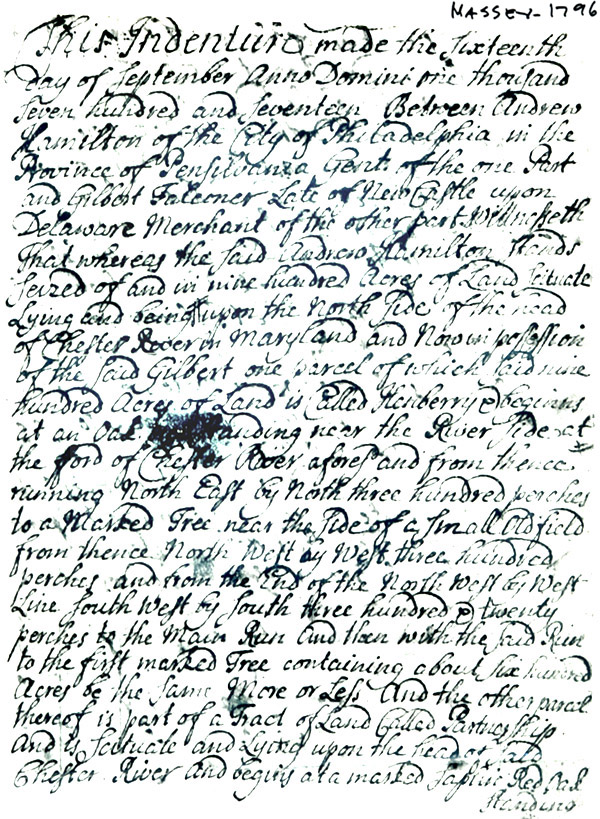 MASSEY - 1796
This Indenture made the Sixteenth
day of September Anno Domini one thousand
Seven hundred and Seventeen Between Andrew
Hamilton of the City of Philadelphia in the
Province of Pensilvania Gent. of the one Part
and Gilbert Falconer Late of New Castle upon
Delaware Merchant of the other part Wittnesseth
That whereas the said Andrew Hamilton Stands
Seized of and in nine hundred Acres of Land Scituate
Lying and being upon the North Side of the head
of Chester River in Maryland and Now in possession
of the said Gilbert one parcel of which said nine
hundred Acres of Land is Called Henberry & begins
at an Oak anding near the River Side at
the ford of Chester River afores and from thence
running North East by North three hundred perches
to a Marked Tree near the Side of a Small Old field
from thence North West by West three hundred
perches and from the End of the North West by West
Line South West by South three hundred & twenty
perches to the Main Run And then with the said Run
to the first marked Tree containing about six hundred
Acres be the Same More or Less And the other parcel
thereof is part of a Tract of Land Called Partnership
And is Scituate and Lying upon the head of said
Chester River And begins at a marked Saplin Red Oak
Standing